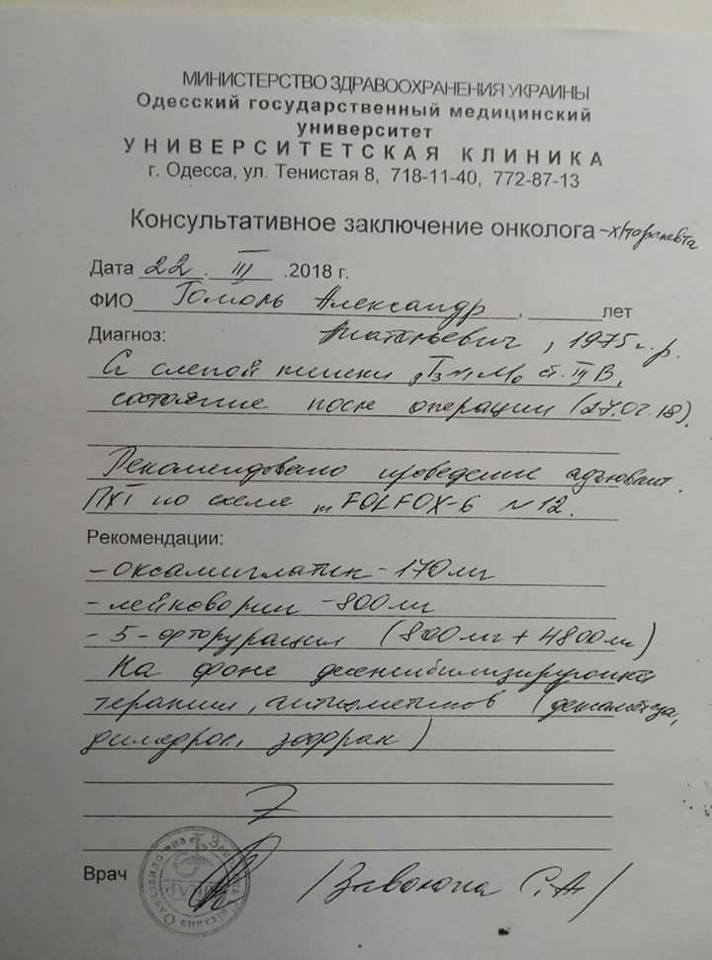 МИНИСТЕРСТВО ЗДРАВООХРАНЕНИЯ УКРАИНЫ
Одесский государственный медицинский
университет
УНИВЕРСИТЕТСКАЯ КЛИНИКА
г. Одесса, ул. Тенистая 8, 718-11-40, 772-87-13
Консультативное заключение онколога -х/терапевта
Дата 22 . III .2018 г.
ФИО Гомоль Александр , лет
Диагноз: Анатольевич, 1975 г.р.
Cr слепой кишки M₀ ст. III В,
состояние после операции (27.02.18).
Рекомендовано проведение адъювант.
ПХТ по схеме m FOLFOX-6 №12.
Рекомендации:
- оксалиплатин - 170 мг
- лейковорин - 800 мг
- 5-фторурацил (800 мг + 4800 мг)
На фоне десенсибилизирующей
терапии, антиэметиков (дексаметаза,
димедрол, зофран)
Врач /Завокина С.А/